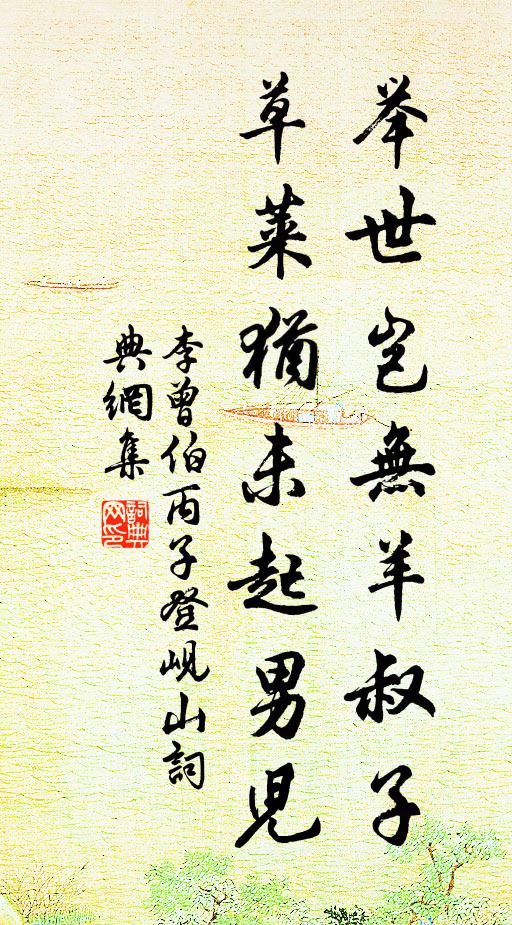 举世岂無羊叔子
草莱猶未起男兒
李曾伯丙子登峴山詞
典網集
詞典網印